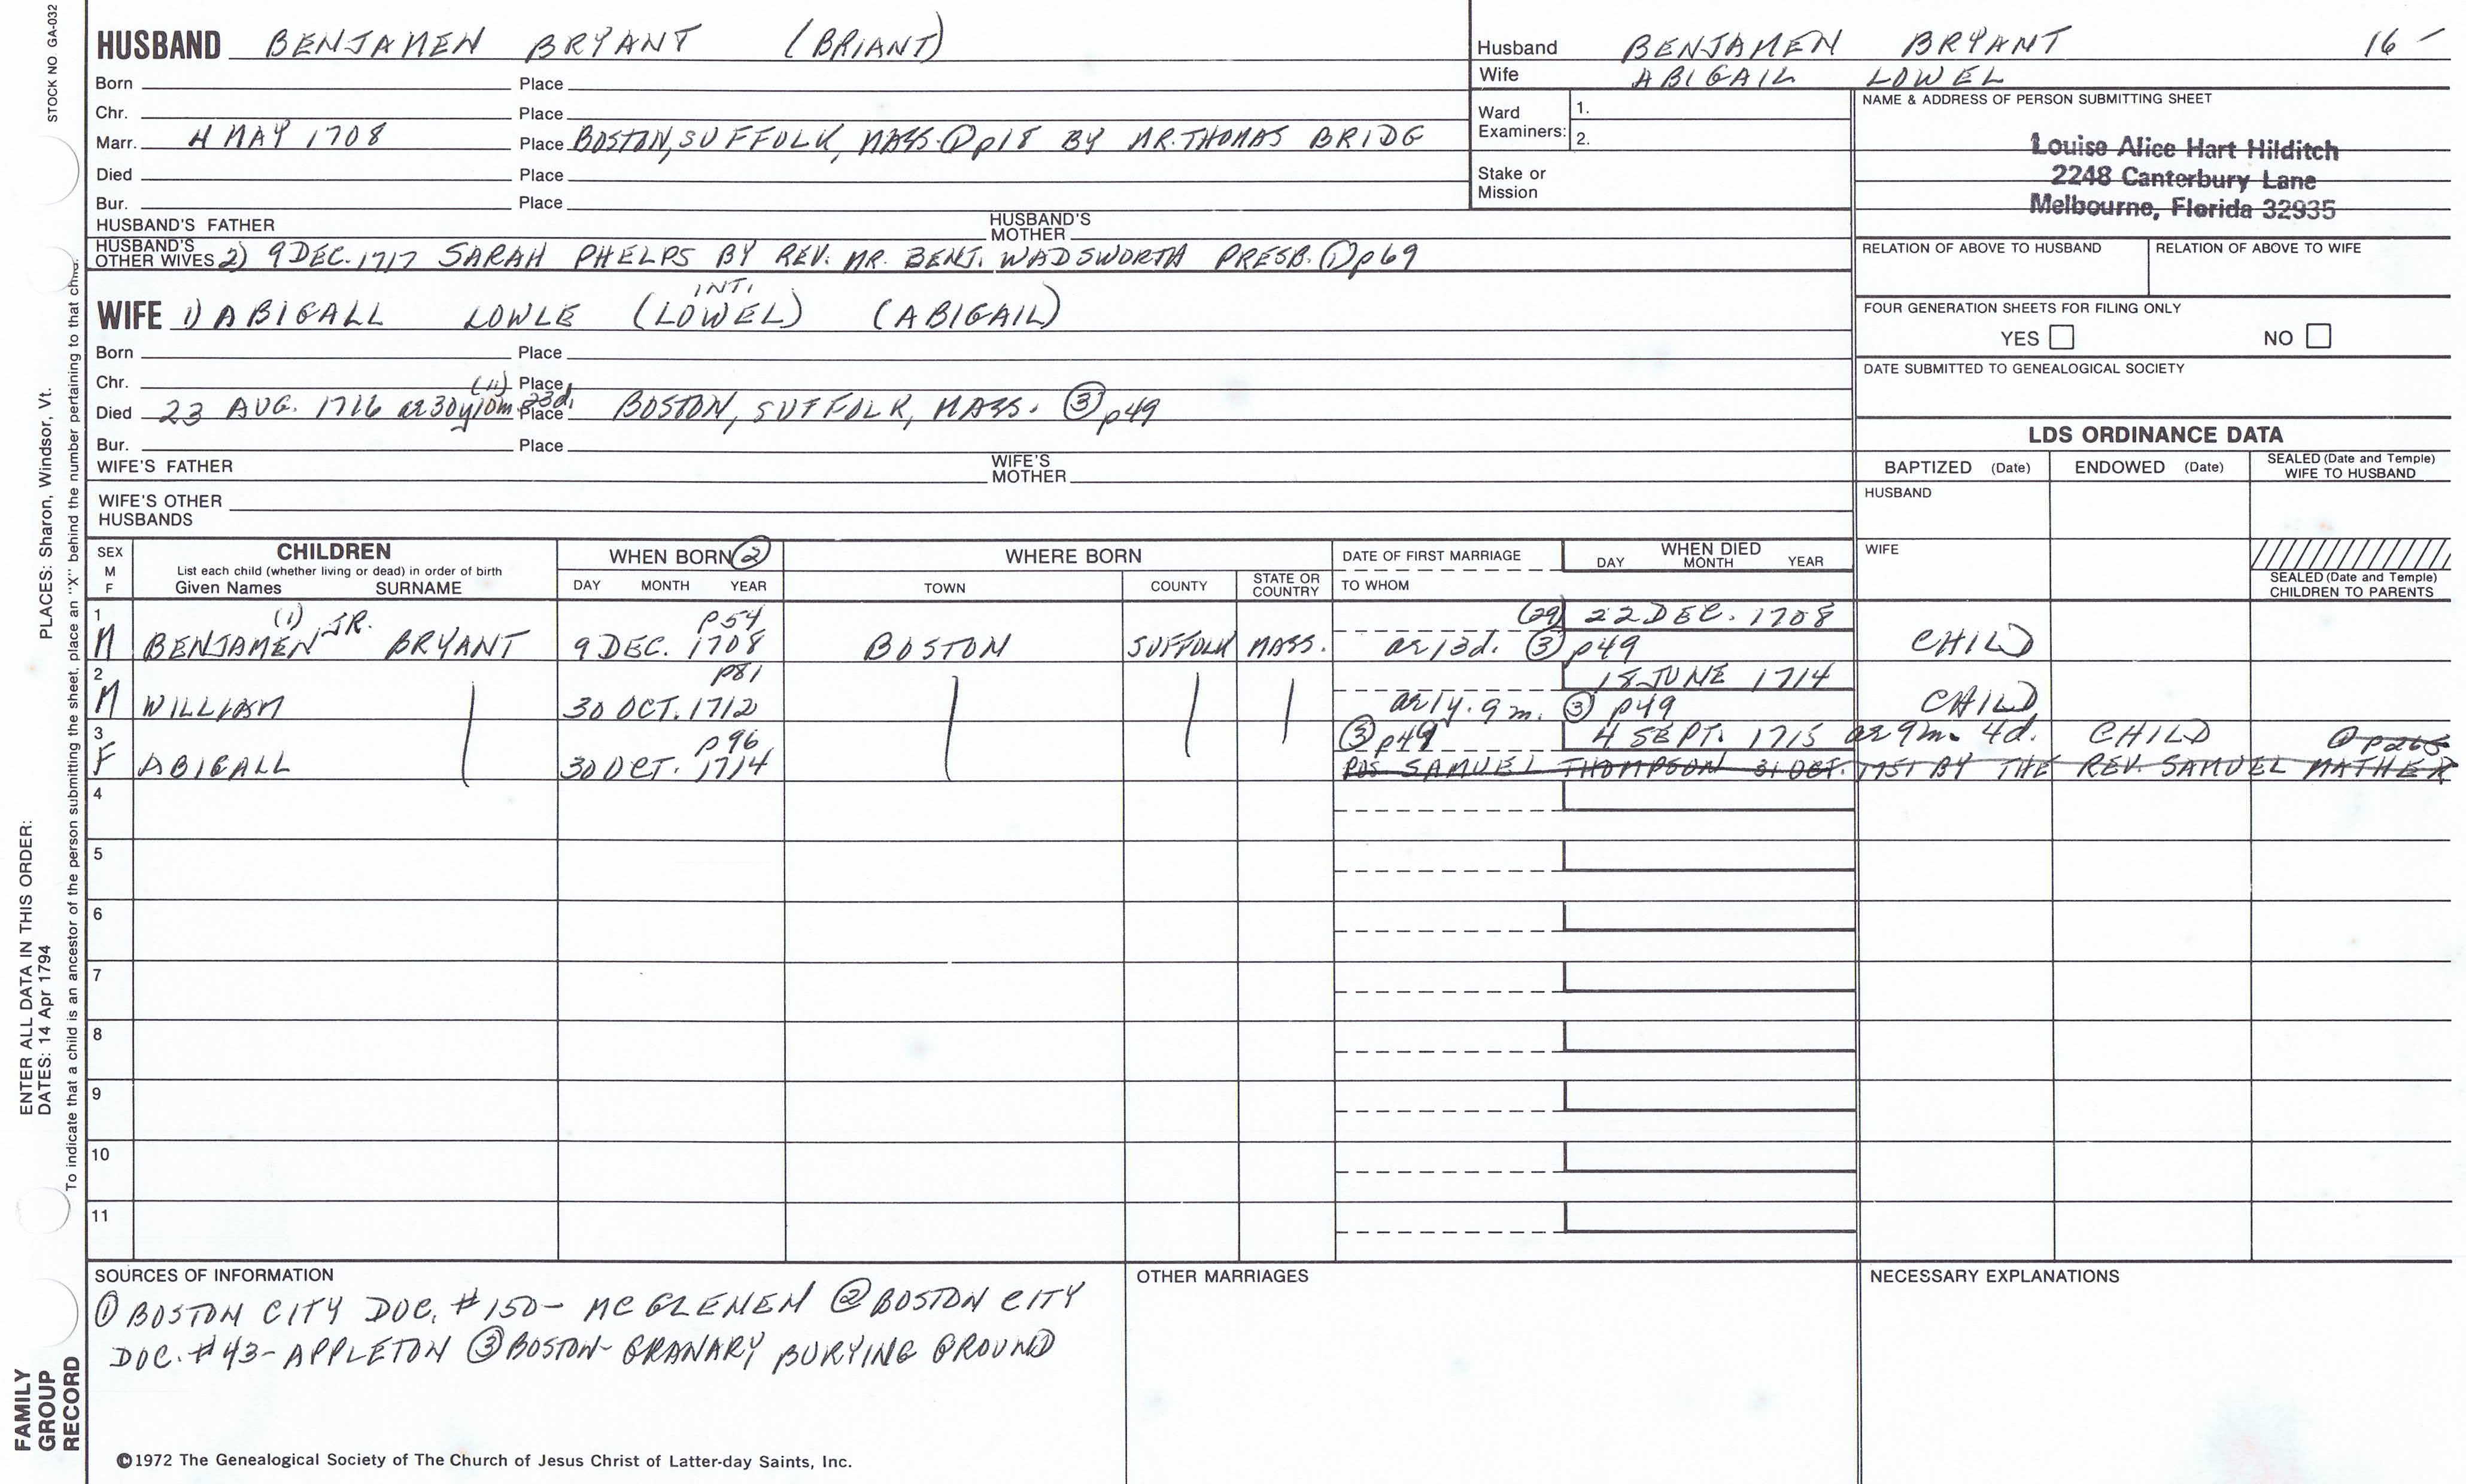 STOCK NO GA-032
HUSBAND BENJAMEN BRYANT (BRIANT)
Born Place
Chr. Place
Marr. 4 MAY 1708 Place BOSTON, SUFFOLK, MASS. ① p18 BY MR. THOMAS BRIDG
Died Place
Bur. Place
HUSBAND'S FATHER HUSBAND'S MOTHER
HUSBAND'S OTHER WIVES 2) 9 DEC. 1717 SARAH PHELPS BY REV. MR. BENJ. WADSWORTH PRESB. ① p69
INT.
WIFE 1) ABIGALL LOWLE (LOWEL) (ABIGAIL)
Born Place
Chr. Place
(11) 23d.
Died 23 AUG. 1716 ae 30y 10m. Place BOSTON, SUFFOLK, MASS. ③ p49
Bur. Place
WIFE'S FATHER WIFE'S MOTHER
WIFE'S OTHER HUSBANDS
Husband BENJAMEN BRYANT 16-
Wife ABIGAIL LOWEL
Ward Examiners: 1.
2.
Stake or Mission
NAME & ADDRESS OF PERSON SUBMITTING SHEET
Louise Alice Hart Hilditch
2248 Canterbury Lane
Melbourne, Florida 32935
RELATION OF ABOVE TO HUSBAND RELATION OF ABOVE TO WIFE
FOUR GENERATION SHEETS FOR FILING ONLY
YES NO
DATE SUBMITTED TO GENEALOGICAL SOCIETY
LDS ORDINANCE DATA
BAPTIZED (Date) ENDOWED (Date) SEALED (Date and Temple) WIFE TO HUSBAND
HUSBAND
WIFE
SEALED (Date and Temple) CHILDREN TO PARENTS
SEX M F
CHILDREN
List each child (whether living or dead) in order of birth
Given Names SURNAME
WHEN BORN ②
DAY MONTH YEAR
WHERE BORN
TOWN COUNTY STATE OR COUNTRY
DATE OF FIRST MARRIAGE
TO WHOM
WHEN DIED
DAY MONTH YEAR
1 (1) JR. p54 (29) 22 DEC. 1708
M BENJAMEN BRYANT 9 DEC. 1708 BOSTON SUFFOLK MASS. ae 13d. ③ p49 CHILD
2 p81 18 JUNE 1714
M WILLIAM 30 OCT. 1712 ae 1y. 9m. ③ p49 CHILD
3 p96 ③ p49 4 SEPT. 1715 ae 9m. 4d. CHILD ① p265
F ABIGALL 30 OCT. 1714 POS SAMUEL THOMPSON 31 OCT. 1751 BY THE REV. SAMUEL MATHER
4
5
6
7
8
9
10
11
SOURCES OF INFORMATION
① BOSTON CITY DOC. #150- MC GLENEN ② BOSTON CITY
DOC. #43- APPLETON ③ BOSTON- GRANARY BURYING GROUND
OTHER MARRIAGES
NECESSARY EXPLANATIONS
©1972 The Genealogical Society of The Church of Jesus Christ of Latter-day Saints, Inc.
ENTER ALL DATA IN THIS ORDER:
DATES: 14 Apr 1794 PLACES: Sharon, Windsor, Vt.
To indicate that a child is an ancestor of the person submitting the sheet, place an "X" behind the number pertaining to that child.
FAMILY
GROUP
RECORD